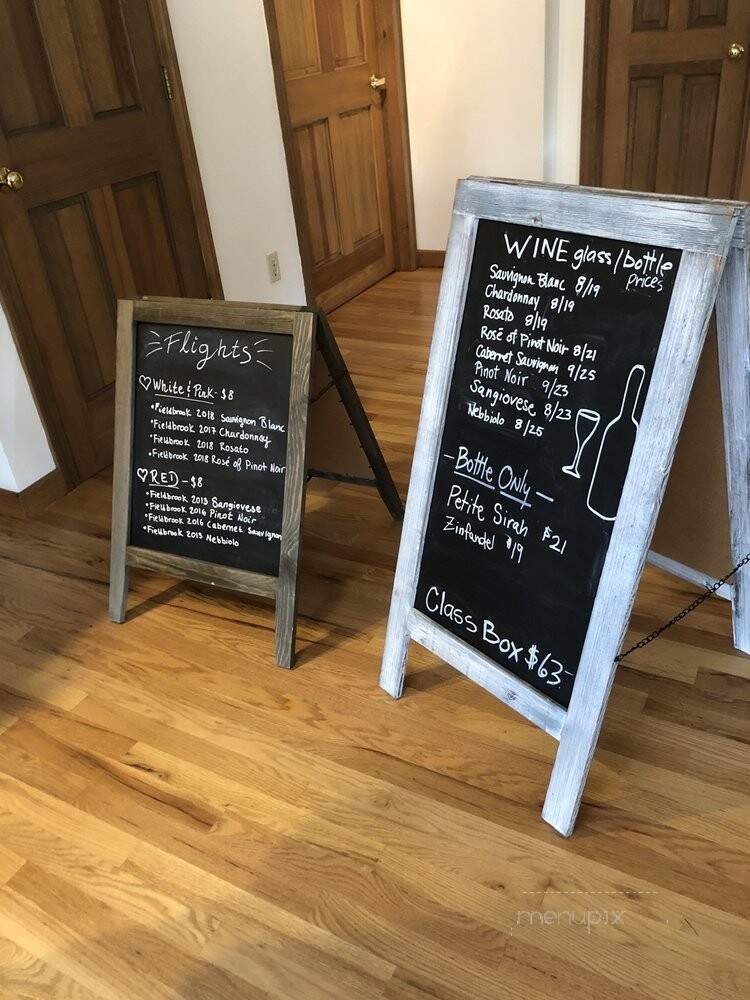 Flights
White & Pink - $8
• Fieldbrook 2018 Sauvignon Blanc
• Fieldbrook 2017 Chardonnay
• Fieldbrook 2018 Rosato
• Fieldbrook 2018 Rosé of Pinot Noir
RED - $8
• Fieldbrook 2013 Sangiovese
• Fieldbrook 2016 Pinot Noir
• Fieldbrook 2016 Cabernet Sauvignon
• Fieldbrook 2013 Nebbiolo
WINE glass/bottle
prices
Sauvignon Blanc 8/19
Chardonnay 8/19
Rosato 8/19
Rosé of Pinot Noir 8/21
Cabernet Sauvignon 9/25
Pinot Noir 9/23
Sangiovese 8/23
Nebbiolo 8/25
- Bottle Only -
Petite Sirah $21
Zinfandel $19
Class Box $63-
menupix